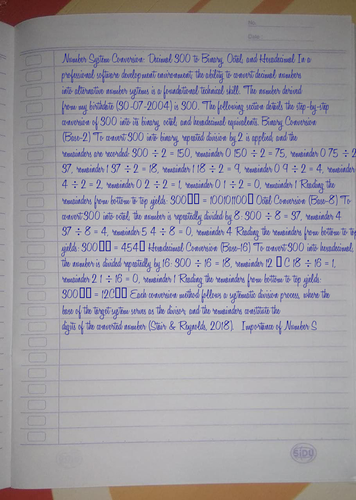 No.
Date:
Number System Conversion: Decimal 300 to Binary, Octal, and Hexadecimal In a
professional software development environment, the ability to convert decimal numbers
into alternative number systems is a foundational technical skill. The number derived
from my birthdate (30-07-2004) is 300. The following section details the step-by-step
conversion of 300 into its binary, octal, and hexadecimal equivalents. Binary Conversion
(Base-2) To convert 300 into binary, repeated division by 2 is applied, and the
remainders are recorded: 300 ÷ 2 = 150, remainder 0 150 ÷ 2 = 75, remainder 0 75 ÷ 2
37, remainder 1 37 ÷ 2 = 18, remainder 1 18 ÷ 2 = 9, remainder 0 9 ÷ 2 = 4, remainder
4 ÷ 2 = 2, remainder 0 2 ÷ 2 = 1, remainder 0 1 ÷ 2 = 0, remainder 1 Reading the
remainders from bottom to top yields: 300▯▯ = 100101100▯ Octal Conversion (Base-8) To
convert 300 into octal, the number is repeatedly divided by 8: 300 ÷ 8 = 37, remainder 4
37 ÷ 8 = 4, remainder 5 4 ÷ 8 = 0, remainder 4 Reading the remainders from bottom to top
yields: 300▯▯ = 454▯ Hexadecimal Conversion (Base-16) To convert 300 into hexadecimal,
the number is divided repeatedly by 16: 300 ÷ 16 = 18, remainder 12 ▯ C 18 ÷ 16 = 1,
remainder 2 1 ÷ 16 = 0, remainder 1 Reading the remainders from bottom to top yields:
300▯▯ = 12C▯▯ Each conversion method follows a systematic division process, where the
base of the target system serves as the divisor, and the remainders constitute the
digits of the converted number (Stair & Reynolds, 2018). Importance of Number S
SIDU